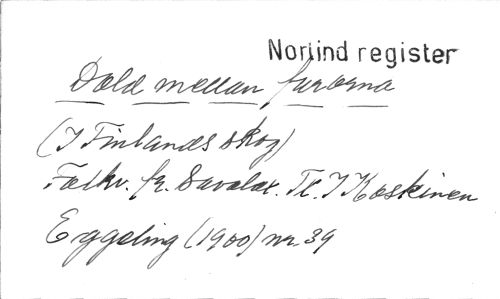 Norlind register
Dold mellan furorna
(I Finlands skog)
Folkv. fr. Savolax. Tl. I Koskinen
Eggeling (1900) nr. 39